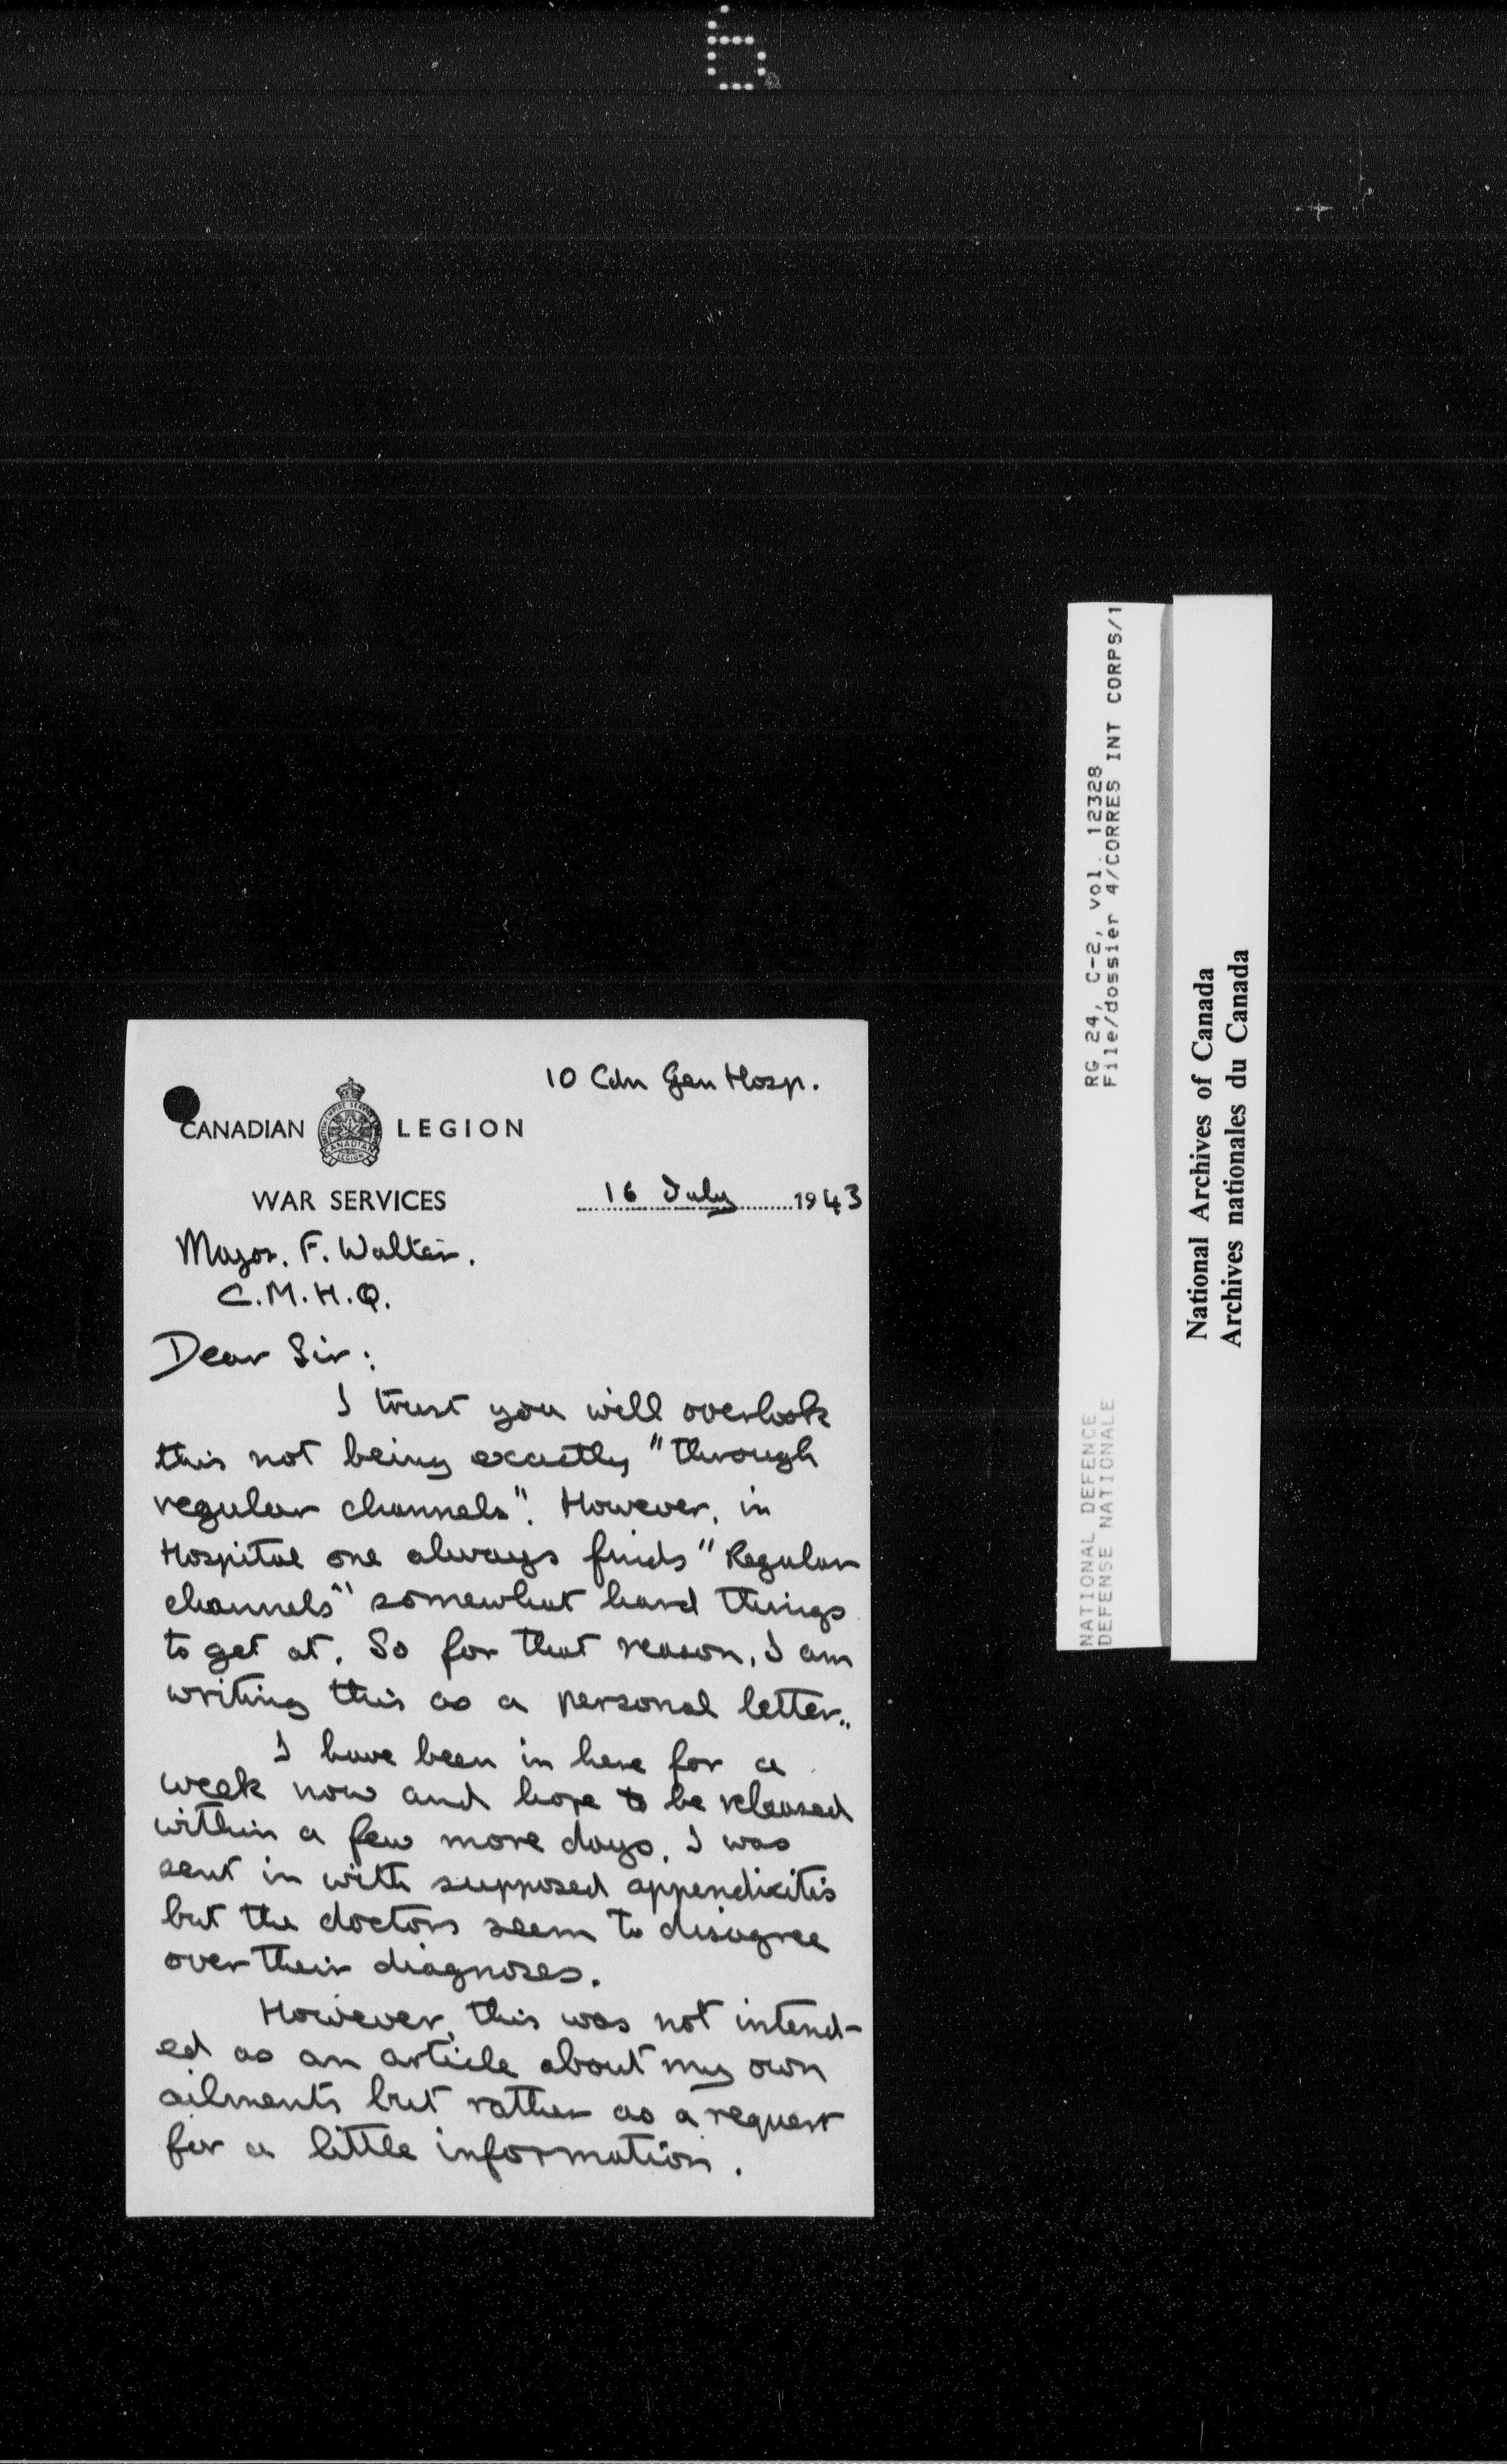 6
10 Cdn Gen Hosp.
CANADIAN LEGION
CANADIAN
LEGION
WAR SERVICES
16 July 1943
Major. F. Walter.
C.M.H.Q.
Dear Sir:
I trust you will overlook
this not being exactly "through
regular channels". However, in
Hospital one always finds "Regular
channels" somewhat hard things
to get at. So for that reason, I am
writing this as a personal letter.
I have been in here for a
week now and hope to be released
within a few more days. I was
sent in with supposed appendicitis
but the doctors seem to disagree
over their diagnoses.
However, this was not intend-
ed as an article about my own
ailments but rather as a request
for a little information.
RG 24, C-2, vol. 12328
File/dossier 4/CORRES INT CORPS/1
NATIONAL DEFENCE
DEFENSE NATIONALE
National Archives of Canada
Archives nationales du Canada